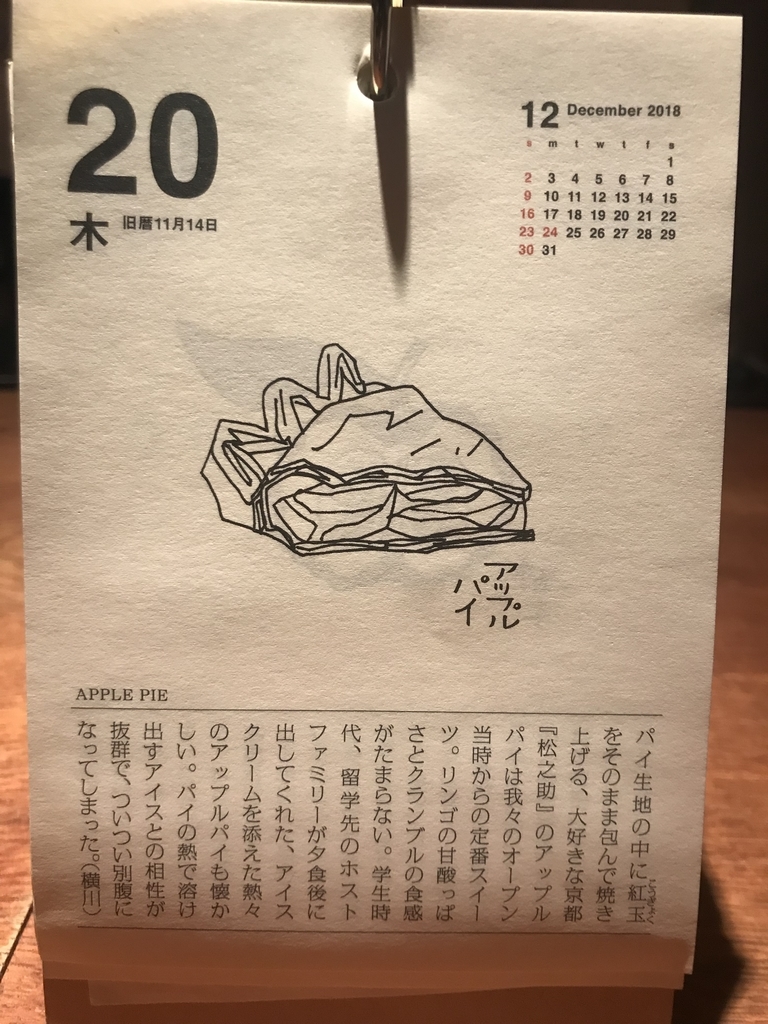 20
木 旧暦11月14日
12 December 2018
s m t w t f s
1
2 3 4 5 6 7 8
9 10 11 12 13 14 15
16 17 18 19 20 21 22
23 24 25 26 27 28 29
30 31
アップル
パイ
APPLE PIE
パイ生地の中に紅玉
こうぎょく
をそのまま包んで焼き
上げる、大好きな京都
『松之助』のアップル
パイは我々のオープン
当時からの定番スイー
ツ。リンゴの甘酸っぱ
さとクランブルの食感
がたまらない。学生時
代、留学先のホスト
ファミリーが夕食後に
出してくれた、アイス
クリームを添えた熱々
のアップルパイも懐か
しい。パイの熱で溶け
出すアイスとの相性が
抜群で、ついつい別腹に
なってしまった。（横川）